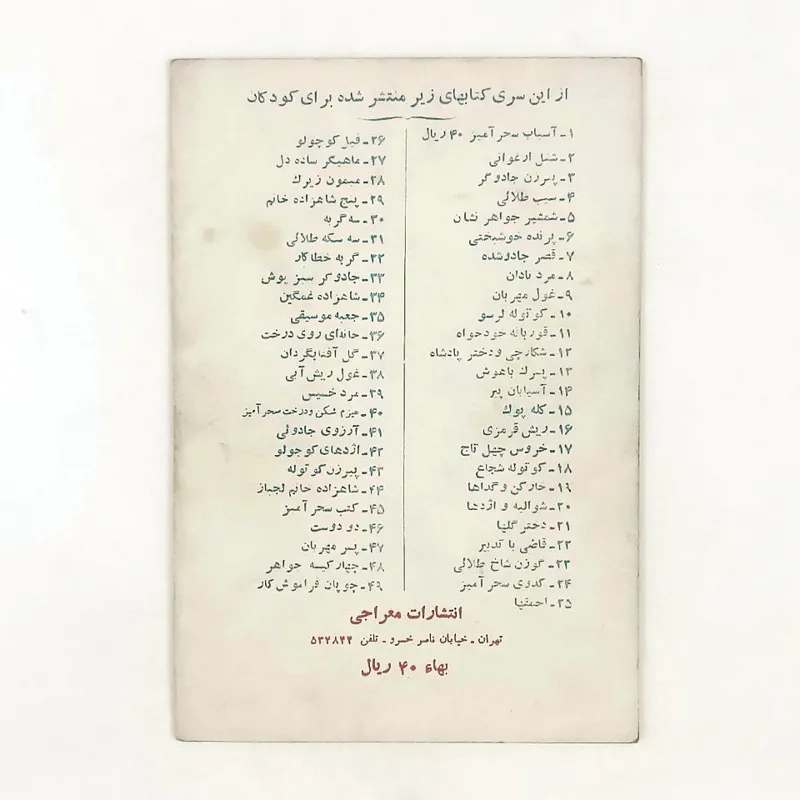 از این سری کتابهای زیر منتشر شده برای کودکان
۱ـ آسیاب سحر آمیز ۴۰ ریال
۲ـ شنل ارغوانی
۳ـ پیرزن جادوگر
۴ـ سیب طلائی
۵ـ شمشیر جواهر نشان
۶ـ پرنده خوشبختی
۷ـ قصر جادوشده
۸ـ مرد نادان
۹ـ غول مهربان
۱۰ـ کوتوله ترسو
۱۱ـ قورباغه خودخواه
۱۲ـ شکارچی و دختر پادشاه
۱۳ـ پسرک باهوش
۱۴ـ آسیابان پیر
۱۵ـ کله پوک
۱۶ـ ریش قرمزی
۱۷ـ خروس چهل تاج
۱۸ـ کوتوله شجاع
۱۹ـ خارکن و گداها
۲۰ـ شوالیه و اژدها
۲۱ـ دختر گلها
۲۲ـ قاضی با تدبیر
۲۳ـ گوزن شاخ طلائی
۲۴ـ کدوی سحر آمیز
۲۵ـ احمقها
۲۶ـ فیل کوچولو
۲۷ـ ماهیگیر ساده دل
۲۸ـ میمون زیرک
۲۹ـ پنج شاهزاده خانم
۳۰ـ سه گربه
۳۱ـ سه سکه طلائی
۳۲ـ گربه خطاکار
۳۳ـ جادوگر سبز پوش
۳۴ـ شاهزاده غمگین
۳۵ـ جعبه موسیقی
۳۶ـ خانه‌ای روی درخت
۳۷ـ گل آفتابگردان
۳۸ـ غول ریش آبی
۳۹ـ مرد خسیس
۴۰ـ هیزم شکن و درخت سحر آمیز
۴۱ـ آرزوی جادوئی
۴۲ـ اژدهای کوچولو
۴۳ـ پیرزن کوتوله
۴۴ـ شاهزاده خانم لجباز
۴۵ـ کتب سحر آمیز
۴۶ـ دو دوست
۴۷ـ پسر مهربان
۴۸ـ چهار کیسه جواهر
۴۹ـ چوپان فراموش کار
انتشارات معراجی
تهران ـ خیابان ناصر خسرو ـ تلفن ۵۳۴۸۴۴
بهاء ۴۰ ریال